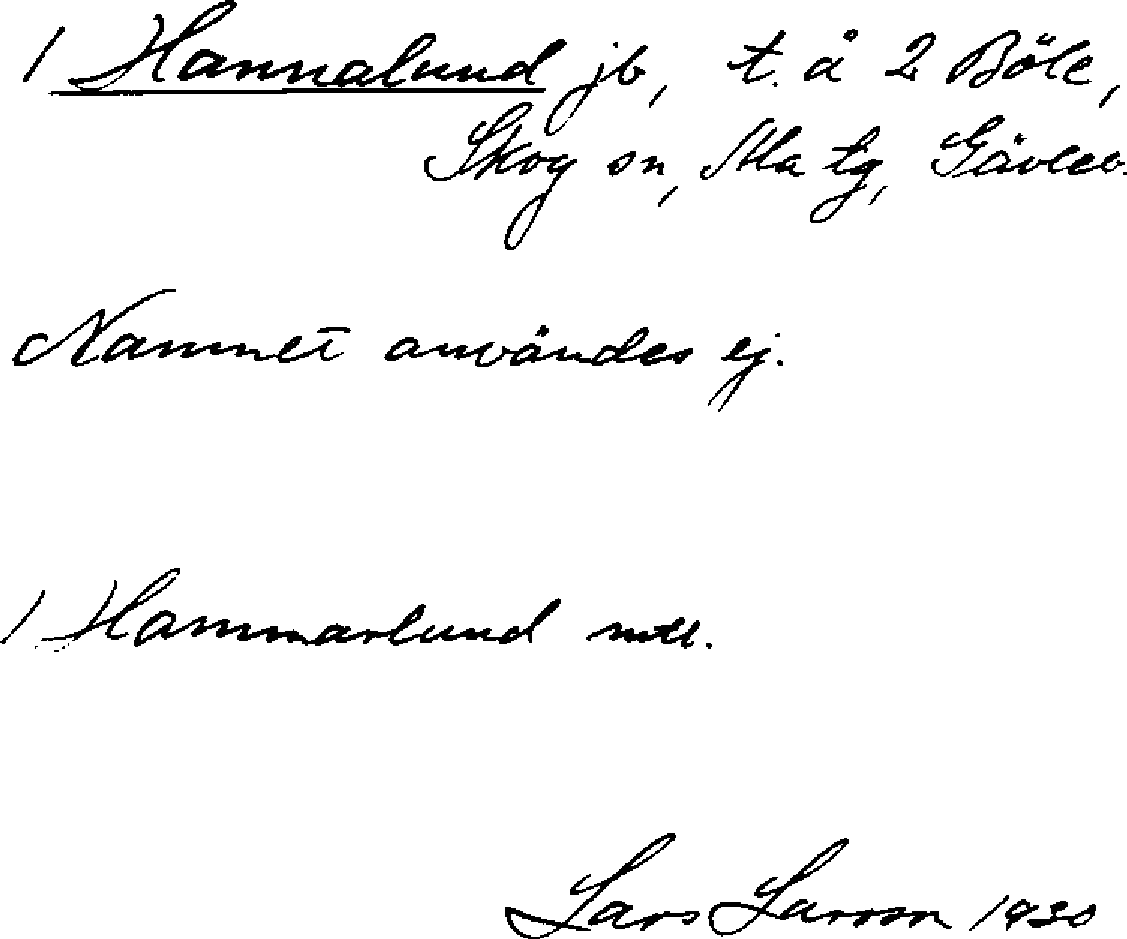 1 Hannalund jb, t. å 2 Böle,
Skog sn, Ala tg, Gävleb.
Namnet användes ej.
1 Hammarlund mtl.
Lars Larsson 1930